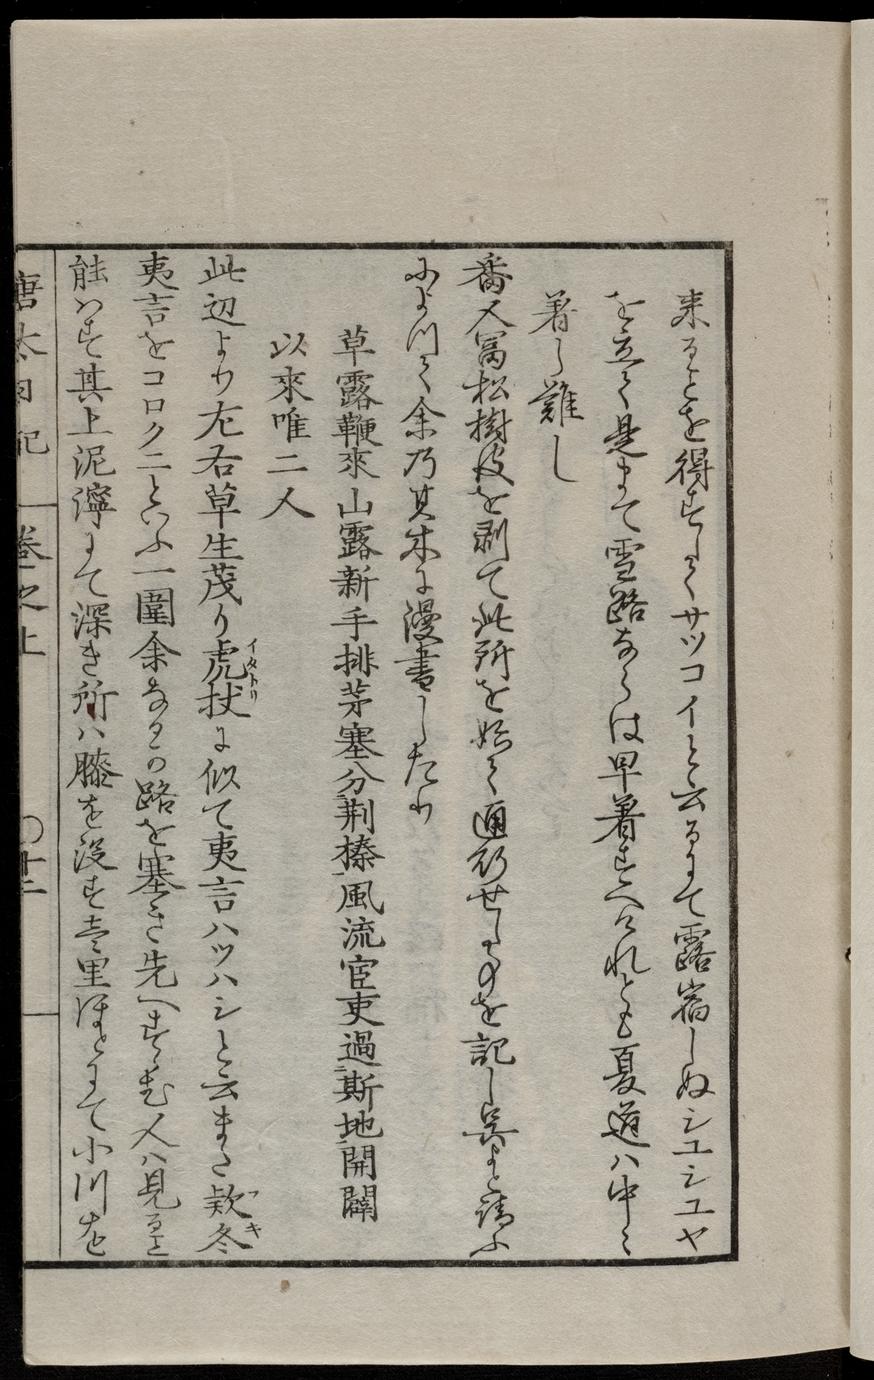 来ることを得すしてサツコイと云るにて露宿しぬシユシユヤ
を立て是まて雪路ならは早着すへけれとも夏道ハ中〻
着し難し
番人冨松樹皮を剥て此所を始て通行せしことを記し呉よと請ふ
によつて余乃其木に漫書したり
草露鞭來山露新手排茅塞分荆榛風流官吏過斯地開闢
以來唯二人
此辺より左右草生茂り虎杖に似て夷言ハツハシと云また欵冬
イタトリ
フキ
夷言をコロクニといふ一圍余なるか路を塞き先へすゝむ人ハ見ること
能はす其上泥濘にて深き所ハ膝を没す壱里ほとにて小川を
唐太日記 巻之上 〇廿二